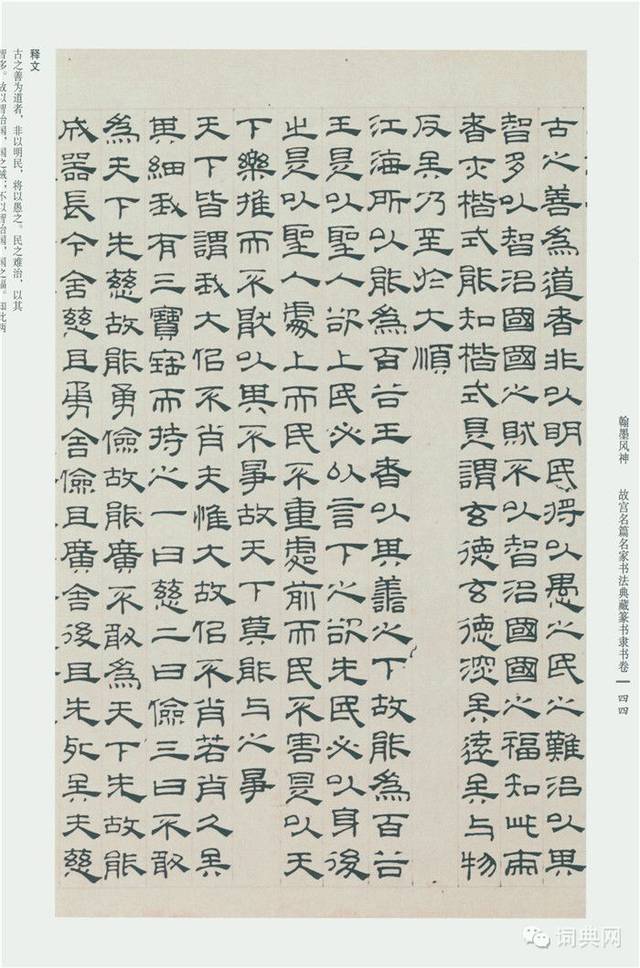 翰墨风神　故宫名篇名家书法典藏篆书隶书卷｜四四
古之善為道者非以明民將以愚之民之難治以其
智多以智治國國之賊不以智治國國之福知此兩
者亦楷式能知楷式是謂玄德玄德深矣遠矣与物
反矣乃至於大順
江海所以能為百谷王者以其善之下故能為百谷
王是以聖人欲上民必以言下之欲先民必以身後
之是以聖人處上而民不重處前而民不害是以天
下樂推而不猒以其不爭故天下莫能与之爭
天下皆謂我大似不肖夫惟大故似不肖若肖久矣
其細我有三寶寶而持之一曰慈二曰儉三曰不敢
為天下先慈故能勇儉故能廣不敢為天下先故能
成器長今舍慈且勇舍儉且廣舍後且先死矣夫慈
释文
古之善为道者，非以明民，将以愚之。民之难治，以其
智多。故以智治国，国之贼；不以智治国，国之福。知此两
词典网